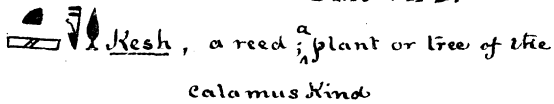 Kesh, a reed; a plant or tree of the
calamus Kind